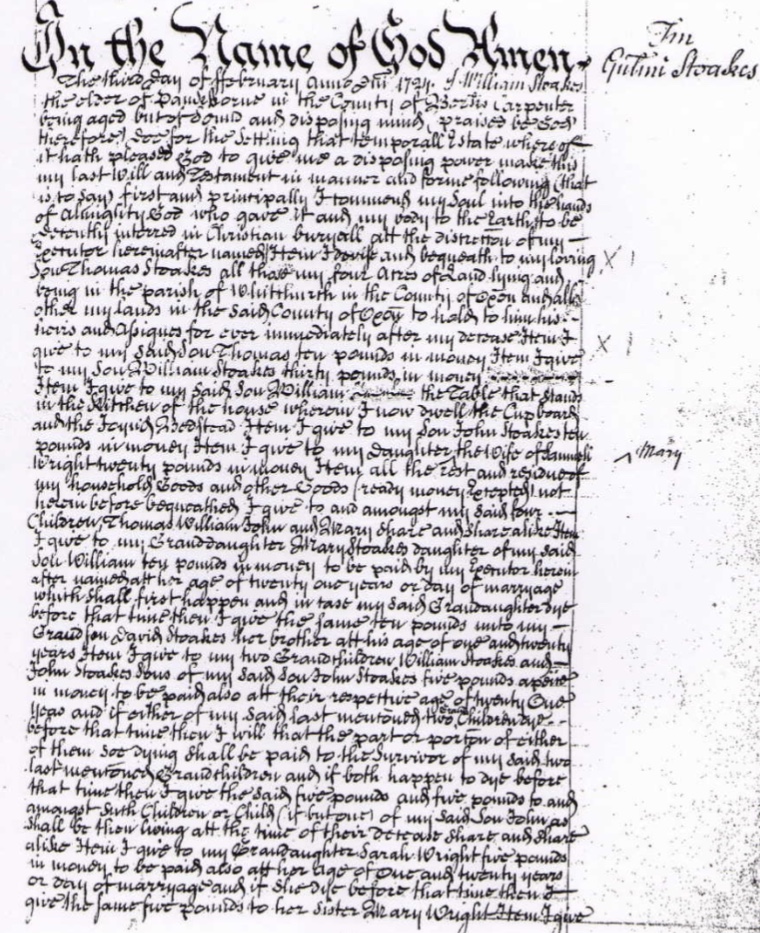 In the Name of God Amen.
Tm
Gulmi Stoakes
The third day of ffebruary Anno Dni 1724. I William Stoakes
the elder of Pangborne in the County of Berks Carpenter
being aged but of sound and disposing mind (praised be God
therefore) Doe for the Setting that temporall Estate whereof
it hath pleased God to give me a disposing power make this
my last Will and Testament in manner and forme following (that
is to say) first and principally I commend my Soul into the hands
of Allmighty God who gave it and my body to the Earth to be
decently interred in Christian buryall att the discretion of my
Executor hereinafter named Item I devise and bequeath to my loving
Son Thomas Stoakes all those my four Acres of Land lying and
being in the parish of Whitchurch in the County of Oxon and all
other my lands in the said County of Oxon to hold to him his
heirs and Assignes for ever immediately after my decease Item I
give to my said Son Thomas ten pounds in money Item I give
to my Son William Stoakes thirty pounds in money
Item I give to my said Son William the Table that stands
in the Kitchen of the house wherein I now dwell the Cupboard
and the Joynd Bedstead Item I give to my Son John Stoakes ten
pounds in money Item I give to my Daughter the Wife of Samuell
Mary
Wright twenty pounds in money Item all the rest and residue of
my household Goods and other Goods (ready money Excepted) not
herein before bequeathed I give to and amongst my said four
Children Thomas William John and Mary share and share alike Item
I give to my Granddaughter Mary Stoakes daughter of my said
Son William ten pounds in money to be paid by my Executor herein
after named att her age of twenty one years or day of marriage
which shall first happen and in case my said Grandaughter dye
before that time then I give the same ten pounds unto my
Grandson David Stoakes her brother att his age of one and twenty
years Item I give to my two Grandchildren William Stoakes and
John Stoakes Sons of my said Son John Stoakes five pounds apeice
in money to be paid also att their respective age of twenty One
years and if either of my said last mentoned two Grand Children dye
before that time then I will that the part or porton of either
of them soe dying shall be paid to the Survivor of my said two
last mentoned Grandchildren and if both happen to dye before
that time then I give the said five pounds and five pounds to and
amongst such Children or Child (if but one) of my said Son John as
shall be then living att the time of their decease share and share
alike Item I give to my Grandaughter Sarah Wright five pounds
in money to be paid also att her age of One and twenty years
or day of marryage and if she dye before that time then I
give the same five pounds to her Sister Mary Wright Item I give